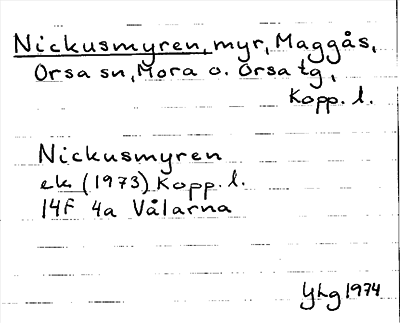 Nickusmyren, myr, Maggås,
Orsa sn, Mora o. Orsa tg,
Kopp. l.
Nickusmyren
ek (1973) Kopp. l.
14F 4a Vålarna
YLg 1974